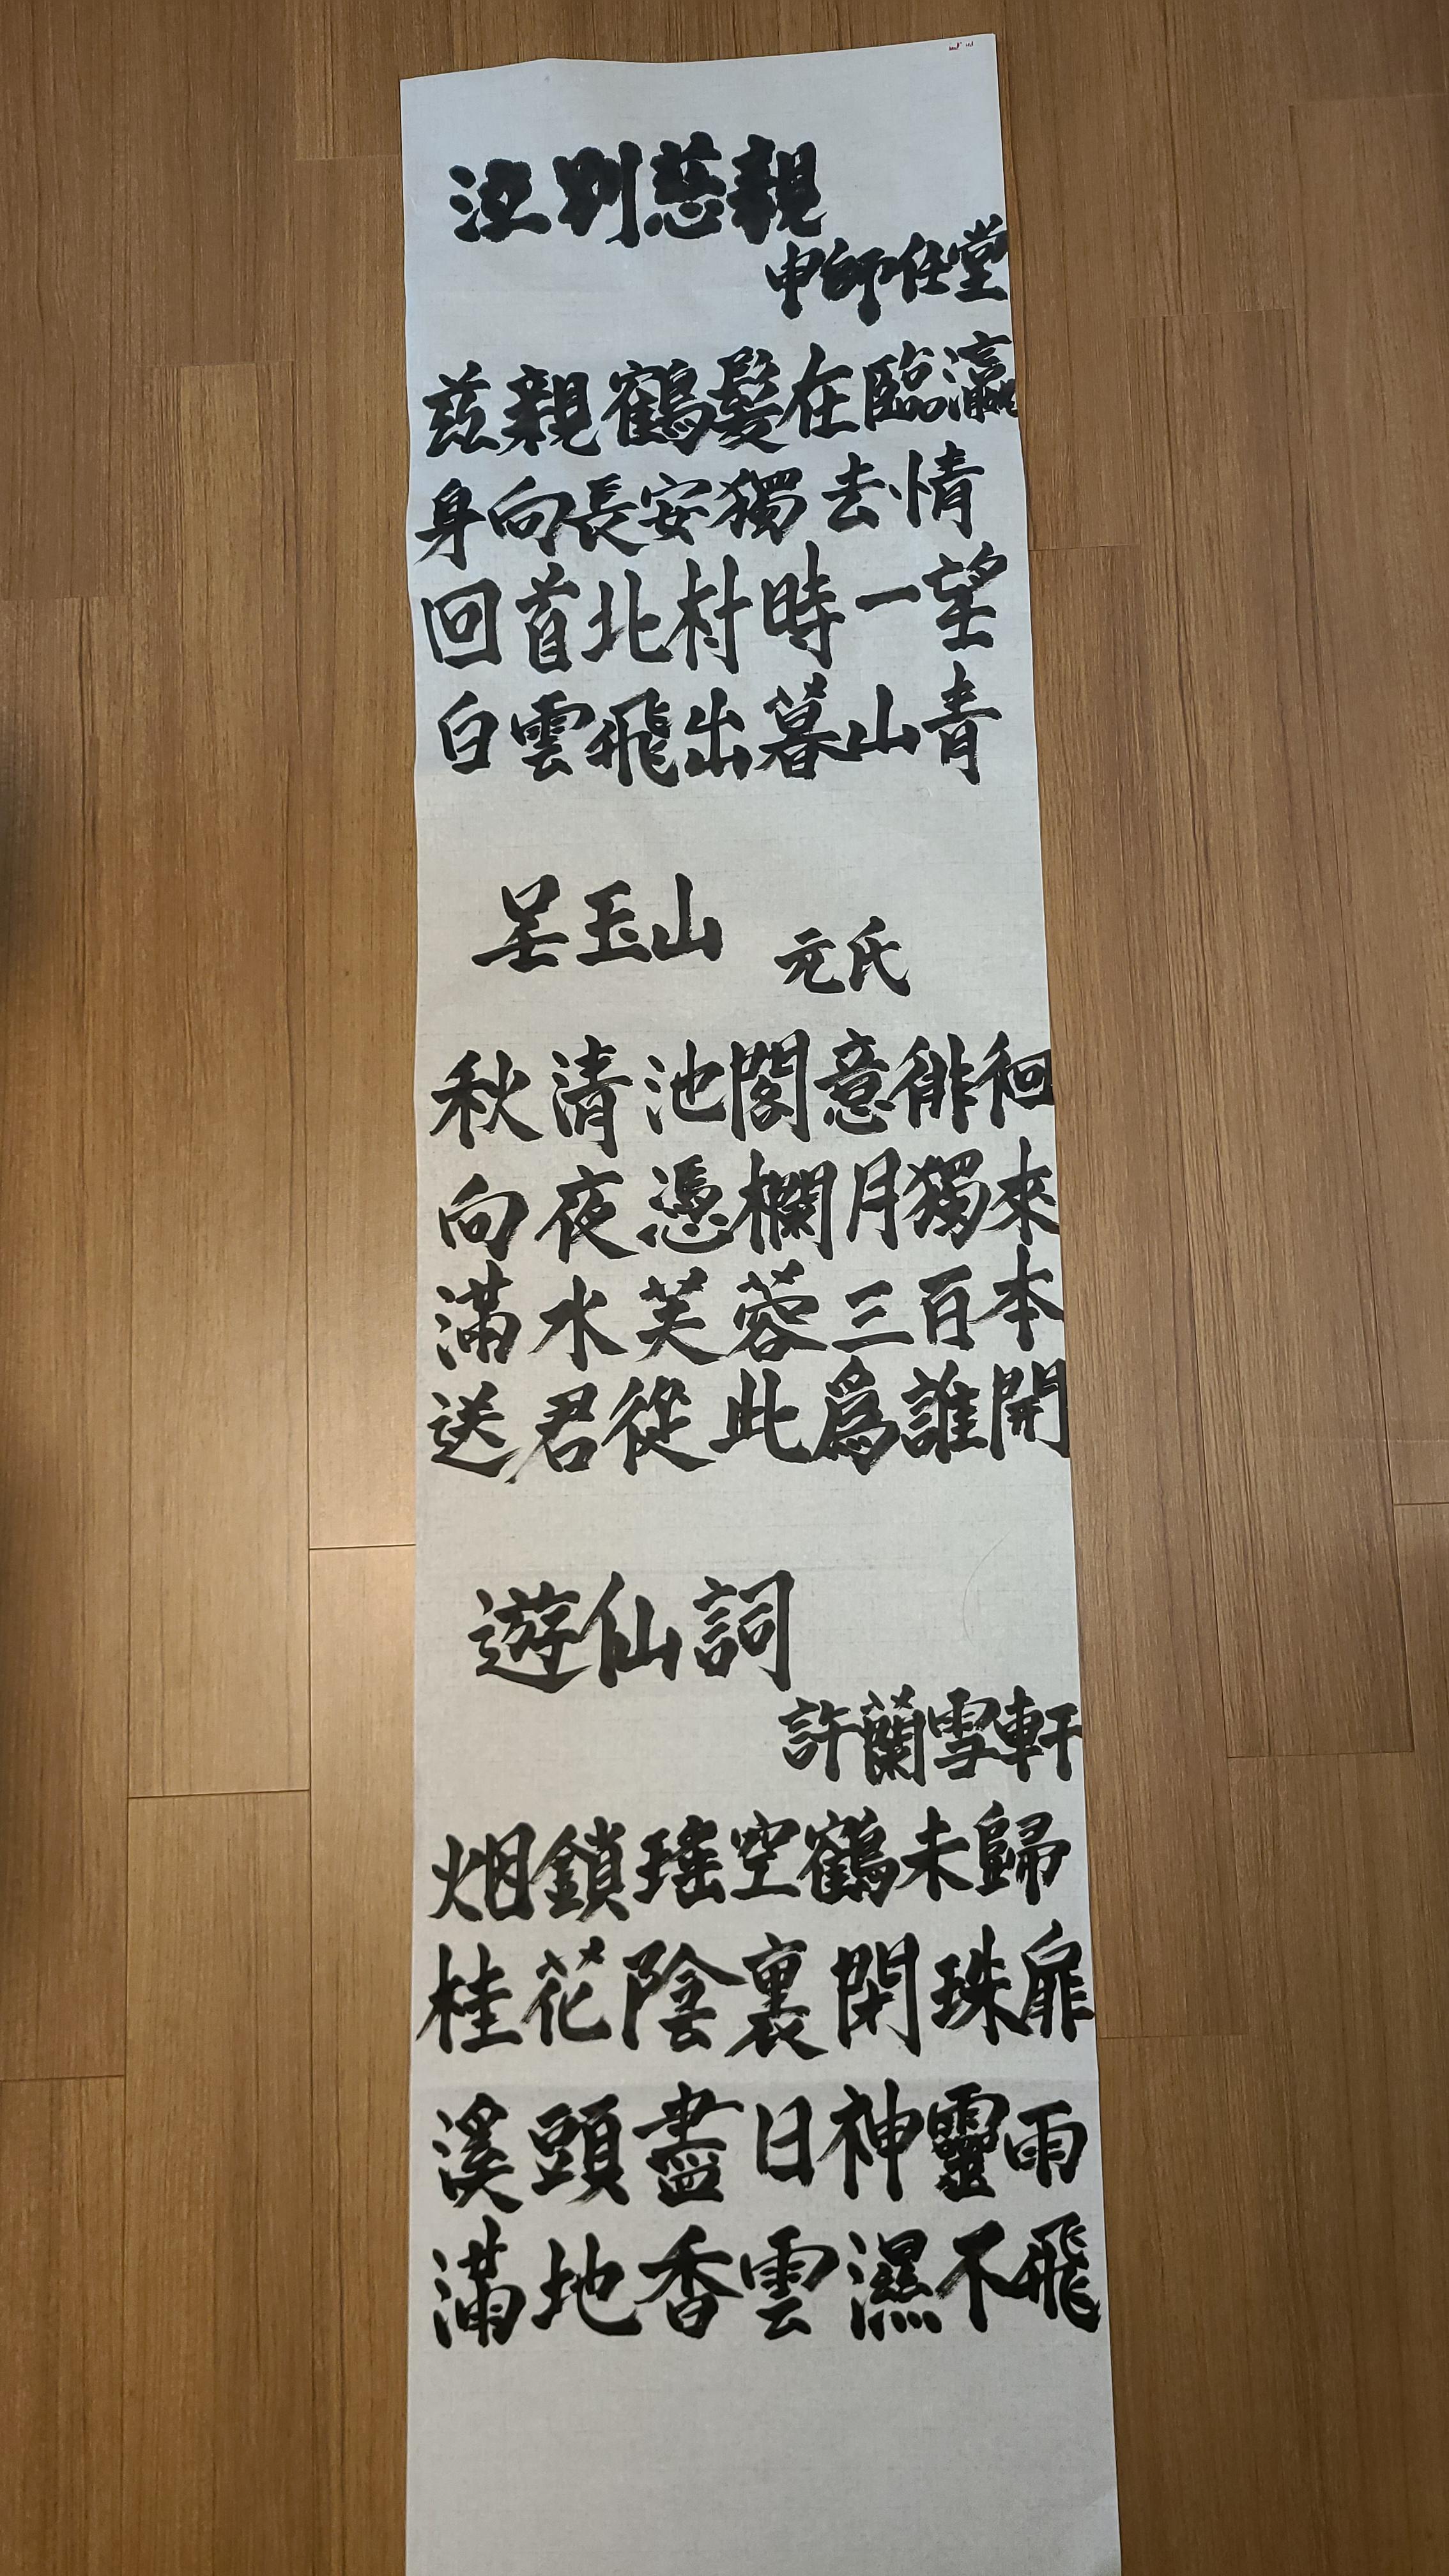 泣别慈親
申師任堂
兹親鶴髮在臨瀛
身向長安獨去情
回首北村時一望
白雲飛出暮山青
呈玉山
元氏
秋清池閣意徘徊
向夜憑欄月獨來
滿水芙蓉三百本
送君從此爲誰開
遊仙詞
許蘭雪軒
烟鎖瑤空鶴未歸
桂花陰裏閉珠扉
溪頭盡日神靈雨
滿地香雲濕不飛